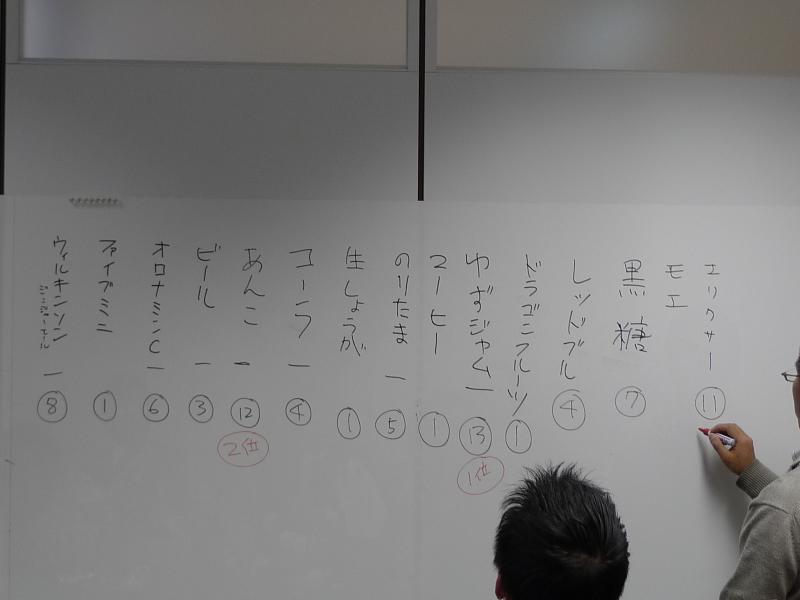 エリクサー
⑪
モエ
黒糖
⑦
レッドブル
④
ドラゴンフルーツ
①
ゆずジャム一
⑬
1位
コーヒー
①
のりたま一
⑤
生しょうが
①
コーラ一
④
あんこ一
⑫
2位
ビール一
③
オロナミンC一
⑥
ファイブミニ
①
ウィルキンソン
ジンジャーエール一
⑧